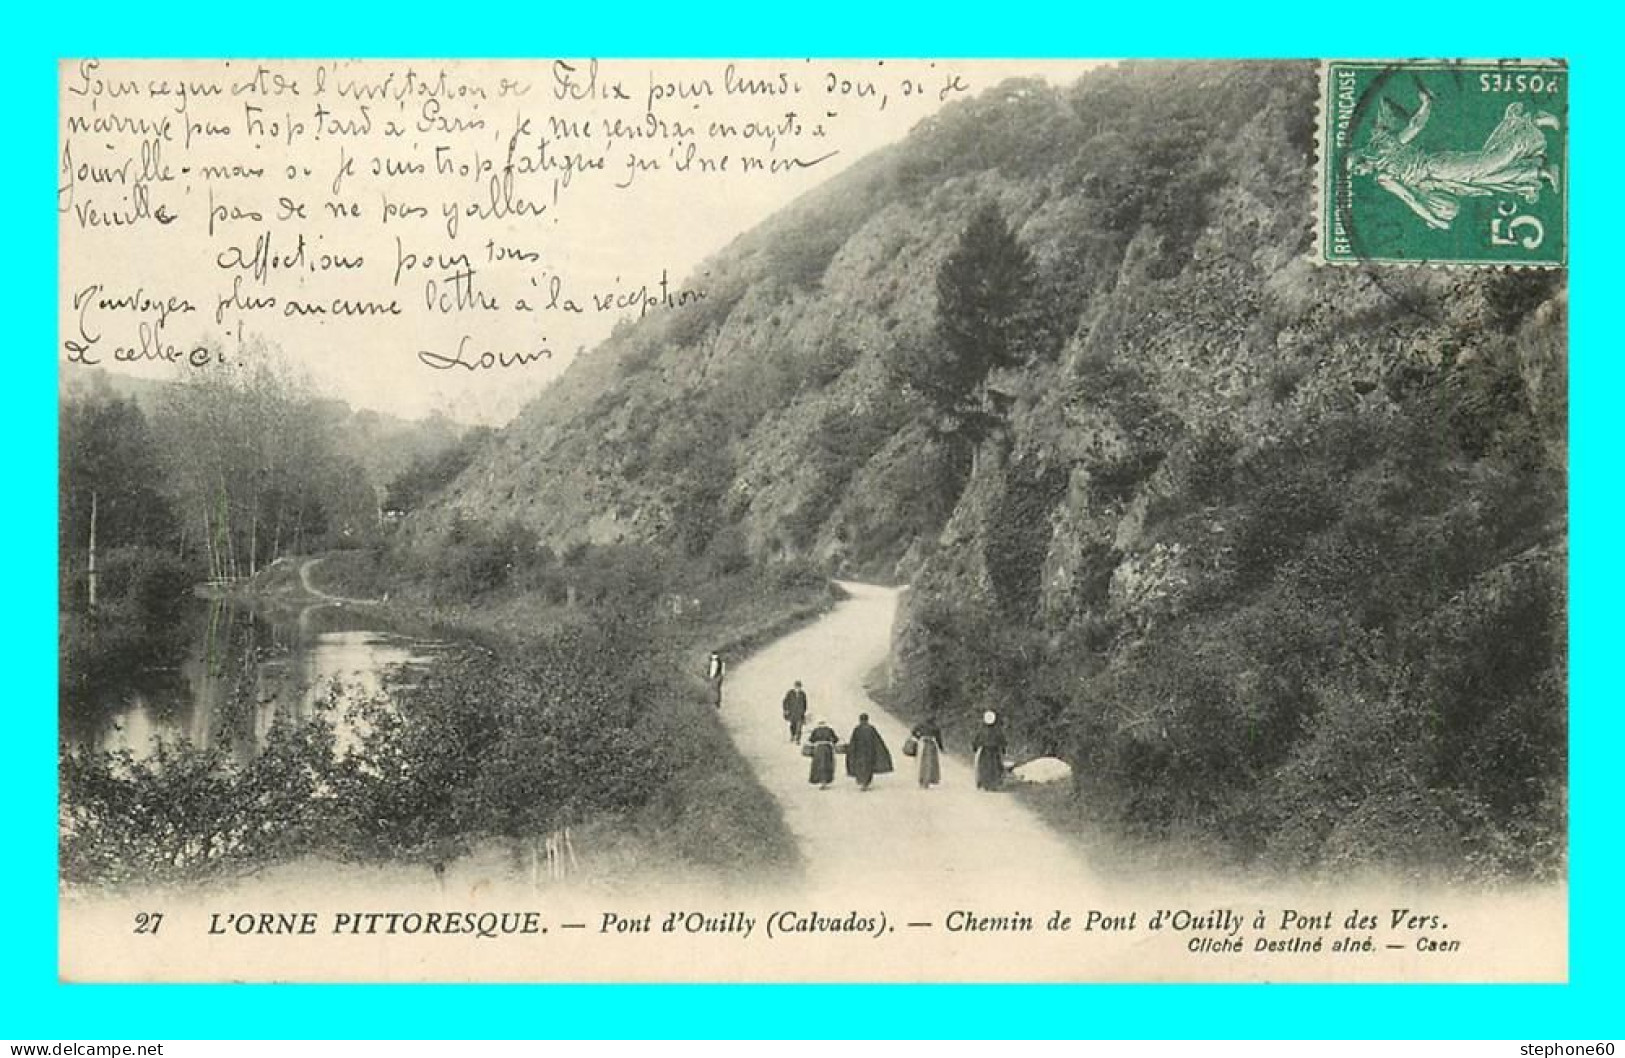 Pour ce qui est de l'invitation de Felix pour lundi soir, si je
n'arrive pas trop tard à Paris, je me rendrai enauts à
Joinville; mais si je suis trop fatigué qu'il ne m'en
veuille pas de ne pas y aller!
Affections pour tous
N'envoyez plus aucune lettre à la réception
de celle-ci!
Louis
POSTES
REPUBLIQUE FRANÇAISE
5c
27 L'ORNE PITTORESQUE. — Pont d'Ouilly (Calvados). — Chemin de Pont d'Ouilly à Pont des Vers.
Cliché Destiné aîné. — Caen
www.delcampe.net
stephone60